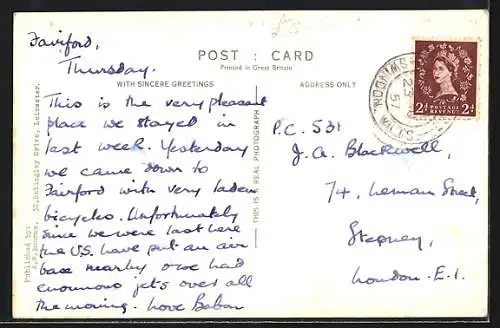 Fairford,
Thursday.
This is the very pleasant
place we stayed in
last week. Yesterday
we came down to
Fairford with very laden
bicycles. Unfortunately
since we were last here
the U.S. have put an air
base nearby & we had
enormous jets over all
the morning. Love
POST : CARD
Printed in Great Britain
WITH SINCERE GREETINGS
ADDRESS ONLY
THIS IS A REAL PHOTOGRAPH
Published by:
Drive, Leicester.
P.C. 531
J.A. Blackwell,
74, Leman Street,
Stepney,
London. E.1.
SWINDON
WILTS
57
2d POSTAGE REVENUE 2d